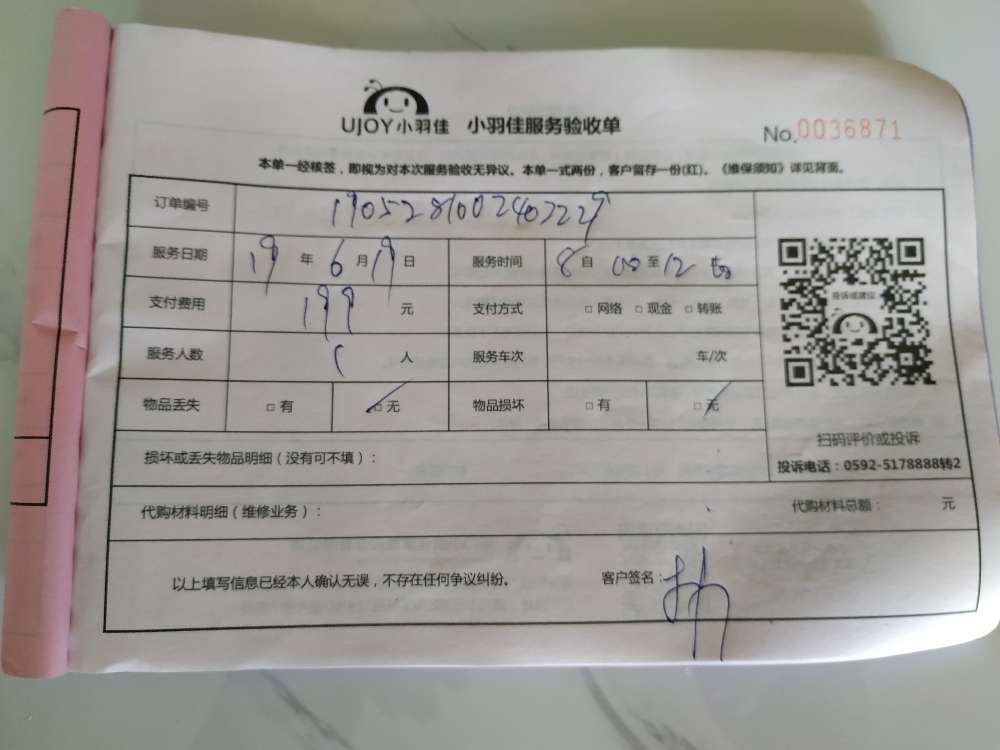 UJOY小羽佳 小羽佳服务验收单
No.0036871
本单一经核签，即视为对本次服务验收无异议。本单一式两份，客户留存一份(红)。《维保须知》详见背面。
订单编号 1905281002403229
服务日期 19 年 6 月 19 日 服务时间 8 自 00 至 12
支付费用 199 元 支付方式 □ 网络 □ 现金 □ 转账
服务人数 1 人 服务车次 车/次
物品丢失 □ 有 □ 无 物品损坏 □ 有 □ 无
投诉或建议
扫码评价或投诉
投诉电话：0592-5178888转2
损坏或丢失物品明细（没有可不填）：
代购材料明细（维修业务）： 代购材料总额： 元
以上填写信息已经本人确认无误，不存在任何争议纠纷。 客户签名：